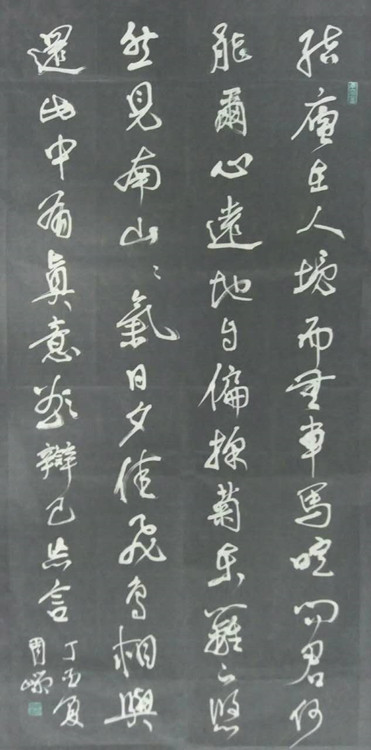 結廬在人境而無車馬喧問君何
能爾心遠地自偏採菊東籬下悠
然見南山〻氣日夕佳飛鳥相與
還此中有眞意欲辯已忘言
丁酉夏